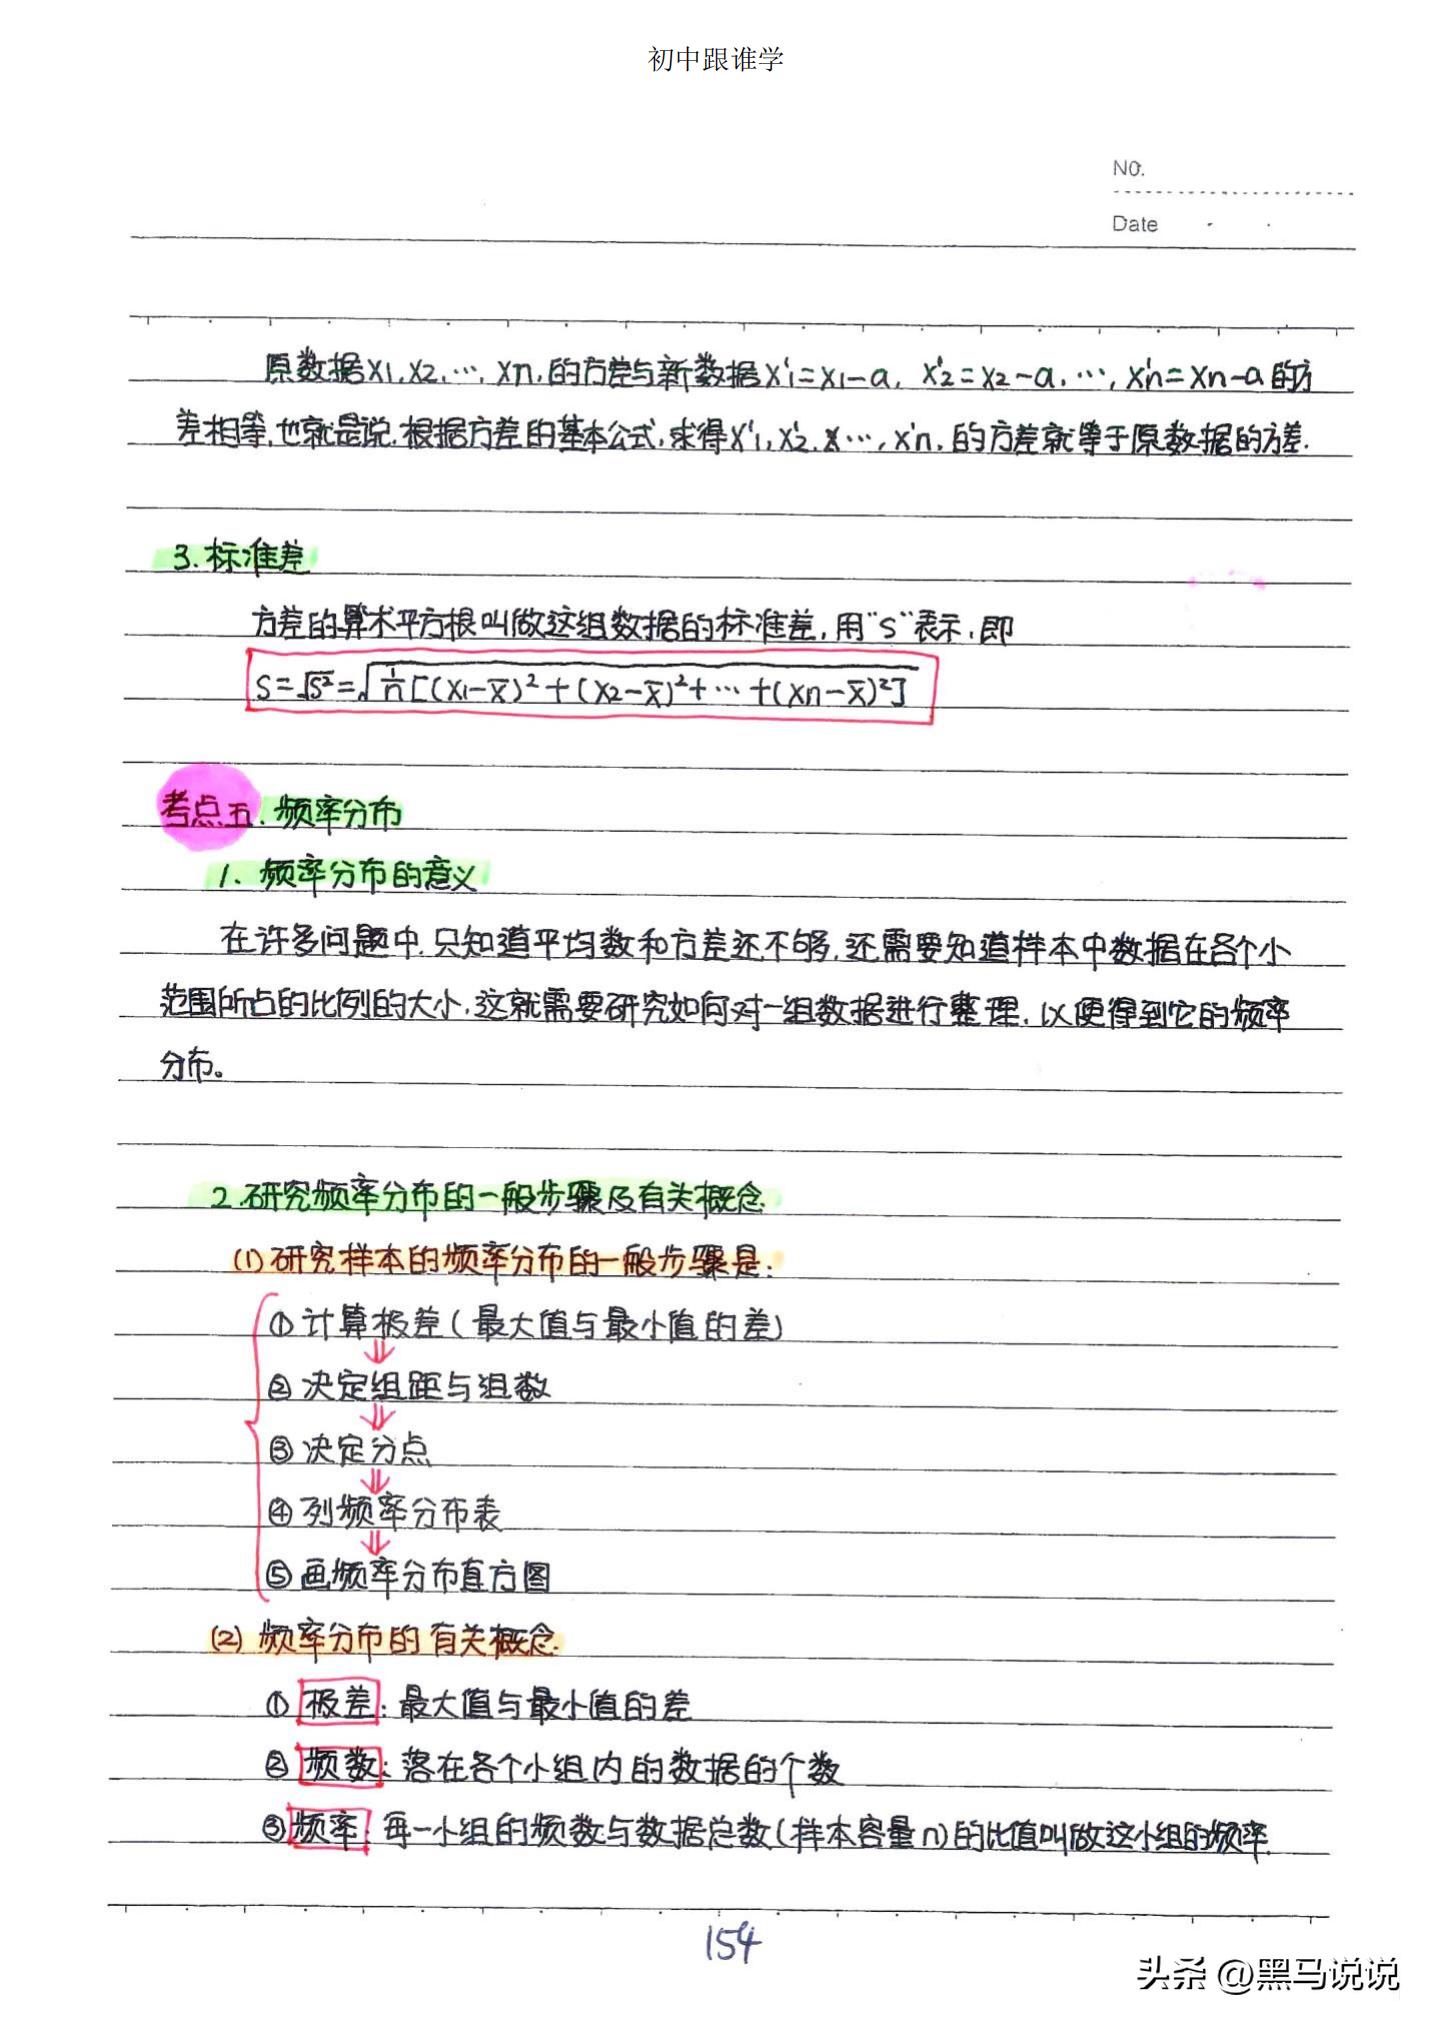 初中跟谁学
NO.
Date
原数据x₁,x₂,…,xn,的方差与新数据x'₁=x₁-a, x'₂=x₂-a,…,x'n=xn-a的方
差相等,也就是说,根据方差的基本公式,求得x'₁,x'₂,…,x'n,的方差就等于原数据的方差.
3.标准差
方差的算术平方根叫做这组数据的标准差,用"S"表示,即
S=√S²=√1/n[(x₁-x̄)²+(x₂-x̄)²+…+(xn-x̄)²]
考点五.频率分布
1.频率分布的意义
在许多问题中,只知道平均数和方差还不够,还需要知道样本中数据在各个小
范围所占的比例的大小,这就需要研究如何对一组数据进行整理,以便得到它的频率
分布。
2.研究频率分布的一般步骤及有关概念.
(1)研究样本的频率分布的一般步骤是:
①计算极差(最大值与最小值的差)
②决定组距与组数
③决定分点
④列频率分布表
⑤画频率分布直方图
(2)频率分布的有关概念.
①极差:最大值与最小值的差
②频数:落在各个小组内的数据的个数
③频率:每一小组的频数与数据总数(样本容量n)的比值叫做这小组的频率.
154
头条 @黑马说说